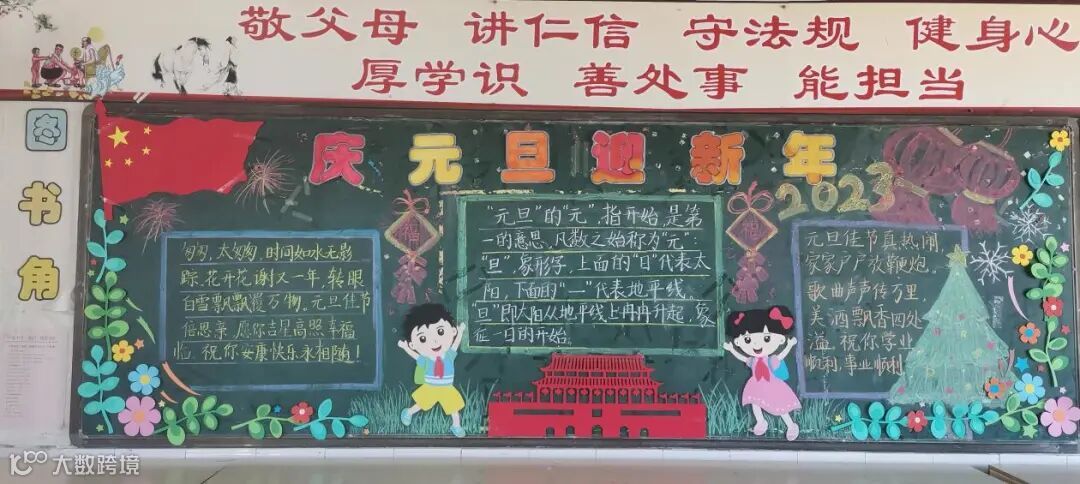 敬父母 讲仁信 守法规 健身心
厚学识 善处事 能担当
图书角
庆元旦迎新年
2023
福
福
匆匆,太匆匆,时间如水无影
踪,花开花谢又一年,转眼
白雪飘飘覆万物。元旦佳节
倍思亲,愿你吉星高照幸福
临。祝你安康快乐永相随!
“元旦”的“元”,指开始,是第
一的意思,凡数之始称为“元”;
“旦”,象形字,上面的“日”代表太
阳,下面的“一”代表地平线。
“旦”即太阳从地平线上冉冉升起,象
征一日的开始。
元旦佳节真热闹,
家家户户放鞭炮。
歌曲声声传万里,
美酒飘香四处
溢。祝你学业
顺利,事业顺利
大数跨境